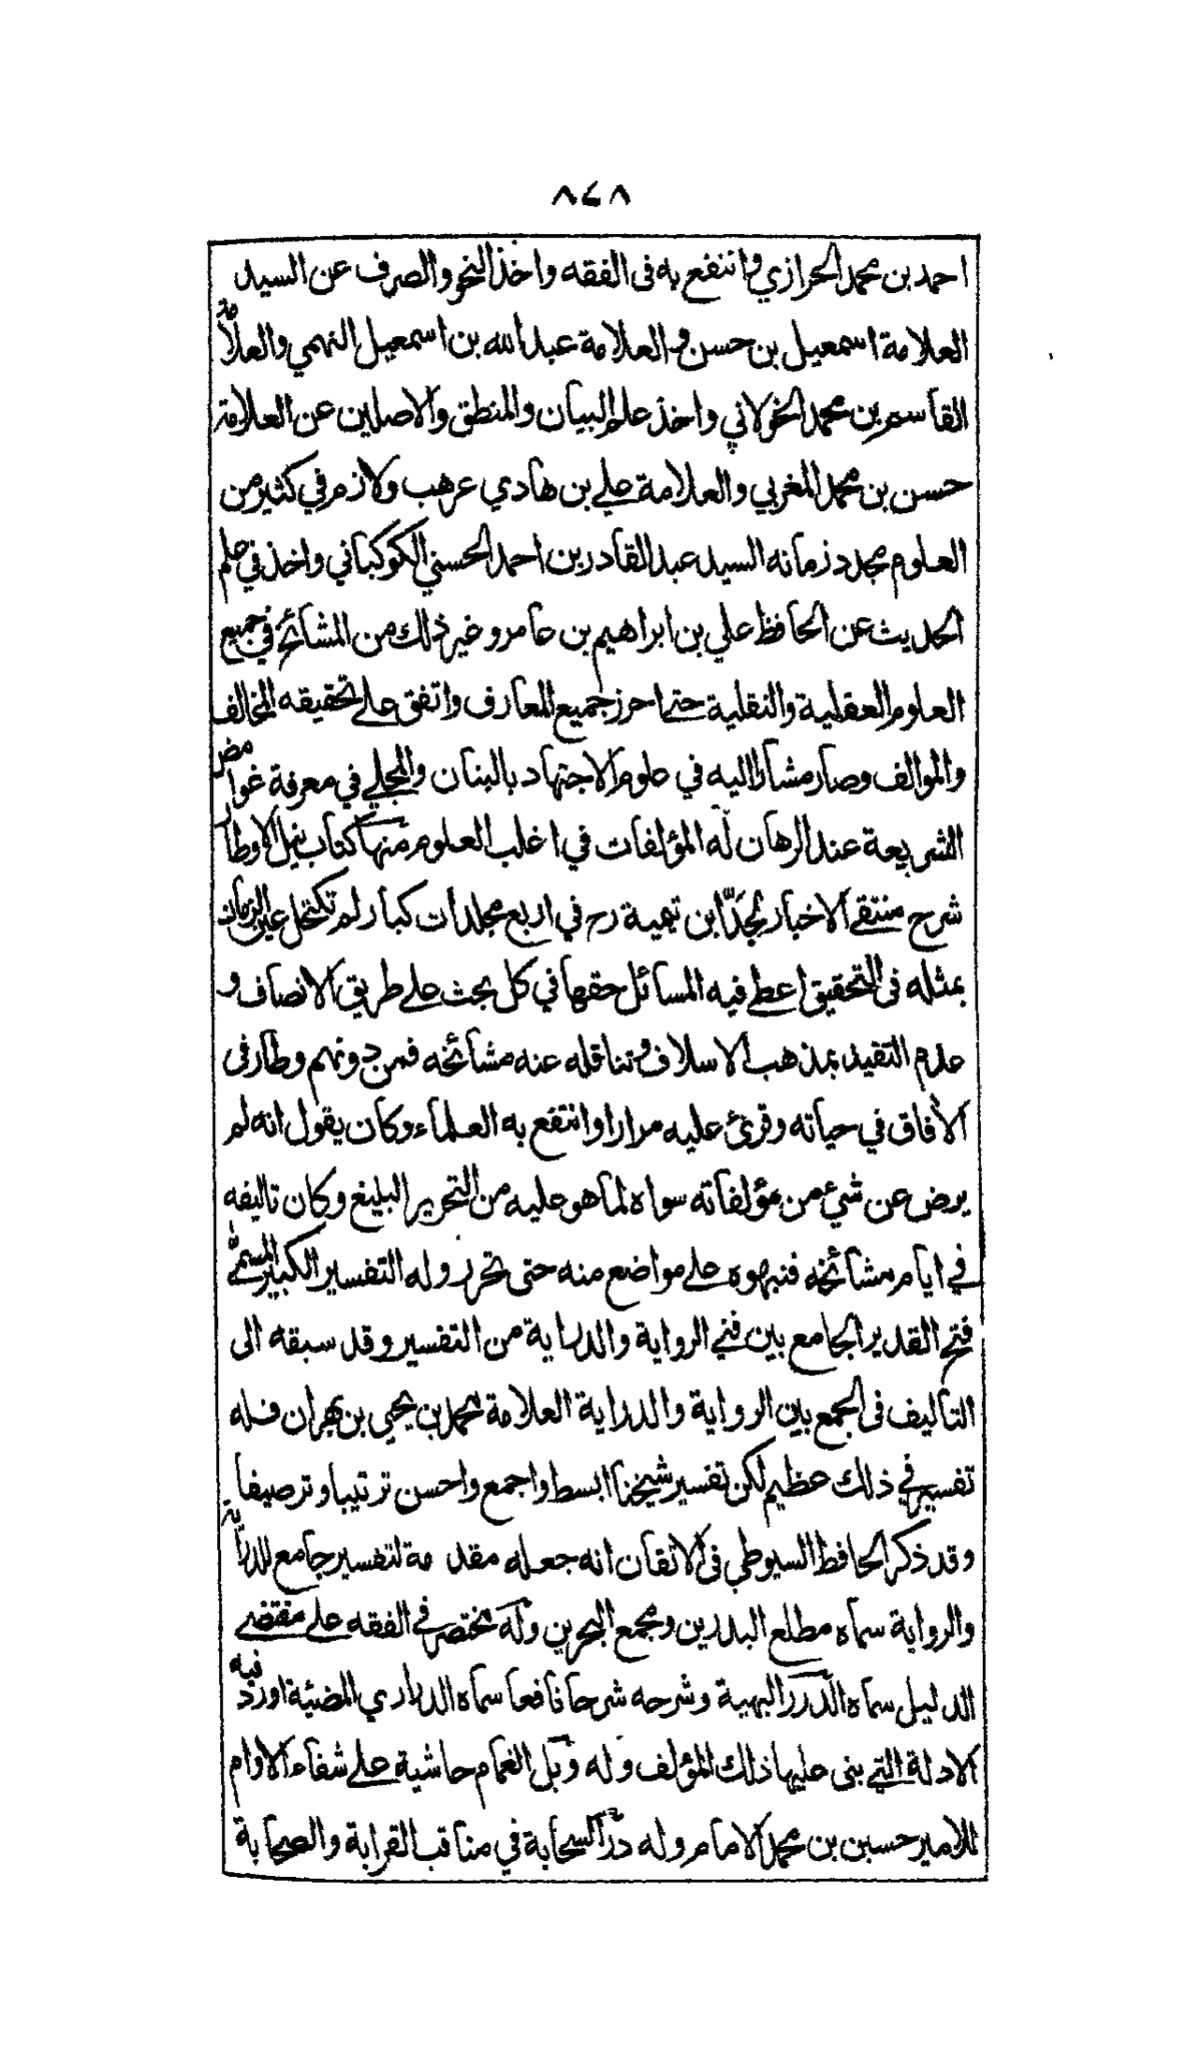 ٨٤٨
احمد بن محمد الحرازي وانتفع به فى الفقه واخذ النحو والصرف عن السيد
العلامة اسمعيل بن حسن و العلامة عبد الله بن اسمعيل النهمي والعلامة
القاسم بن محمد الخولاني واخذ علم البيان والمنطق والاصلين عن العلامة
حسن بن محمد المغربي والعلامة علي بن هادي عرهب ولازم في كثير من
العلوم مجدد زمانه السيد عبد القادر بن احمد الحسني الكوكباني واخذ في علم
الحديث عن الحافظ علي بن ابراهيم بن عامر وغير ذلك من المشائخ في جميع
العلوم العقلية والنقلية حتى احرز جميع المعارف واتفق على تحقيقه المخالف
والموالف وصار مشارا اليه في علوم الاجتهاد بالبنان والمجلي في معرفة غوامض
الشريعة عند الرهان له المؤلفات في اغلب العلوم منها كتاب نيل الاوطار
شرح منتقى الاخبار لجد ابن تيمية رح في اربع مجلدات كبار لم تكتحل عين الزمان
بمثله فى التحقيق اعطى فيه المسائل حقها في كل بحث على طريق الانصاف و
عدم التقيد بمذهب الاسلاف وتناقله عنه مشائخه فمن دونهم وطار فى
الآفاق في حياته وقرئ عليه مرارا وانتفع به العلماء وكان يقول انه لم
يرض عن شيء من مؤلفاته سواه لما هو عليه من التحرير البليغ وكان تاليفه
في ايام مشائخه فنبهوه على مواضع منه حتى تحرر وله التفسير الكبير المسمى
فتح القدير الجامع بين فني الرواية والدراية من التفسير وقد سبقه الى
التاليف فى الجمع بين الرواية والدراية العلامة محمد بن يحيى بن بهران فله
تفسير في ذلك عظيم لكن تفسير شيخنا ابسط واجمع واحسن ترتيبا وترصيفا
وقد ذكر الحافظ السيوطي فى الاتقان انه جعله مقدمة لتفسير جامع للدراية
والرواية سماه مطلع البدرين ومجمع البحرين وله مختصر في الفقه على مقتضى
الدليل سماه الدرر البهية وشرحه شرحا نافعا سماه الدراري المضيئة اورد فيه
الادلة التي بنى عليها ذلك المؤلف وله وبل الغمام حاشية على شفاء الاوام
للامير حسين بن محمد الامام وله در السحابة في مناقب القرابة والصحابة